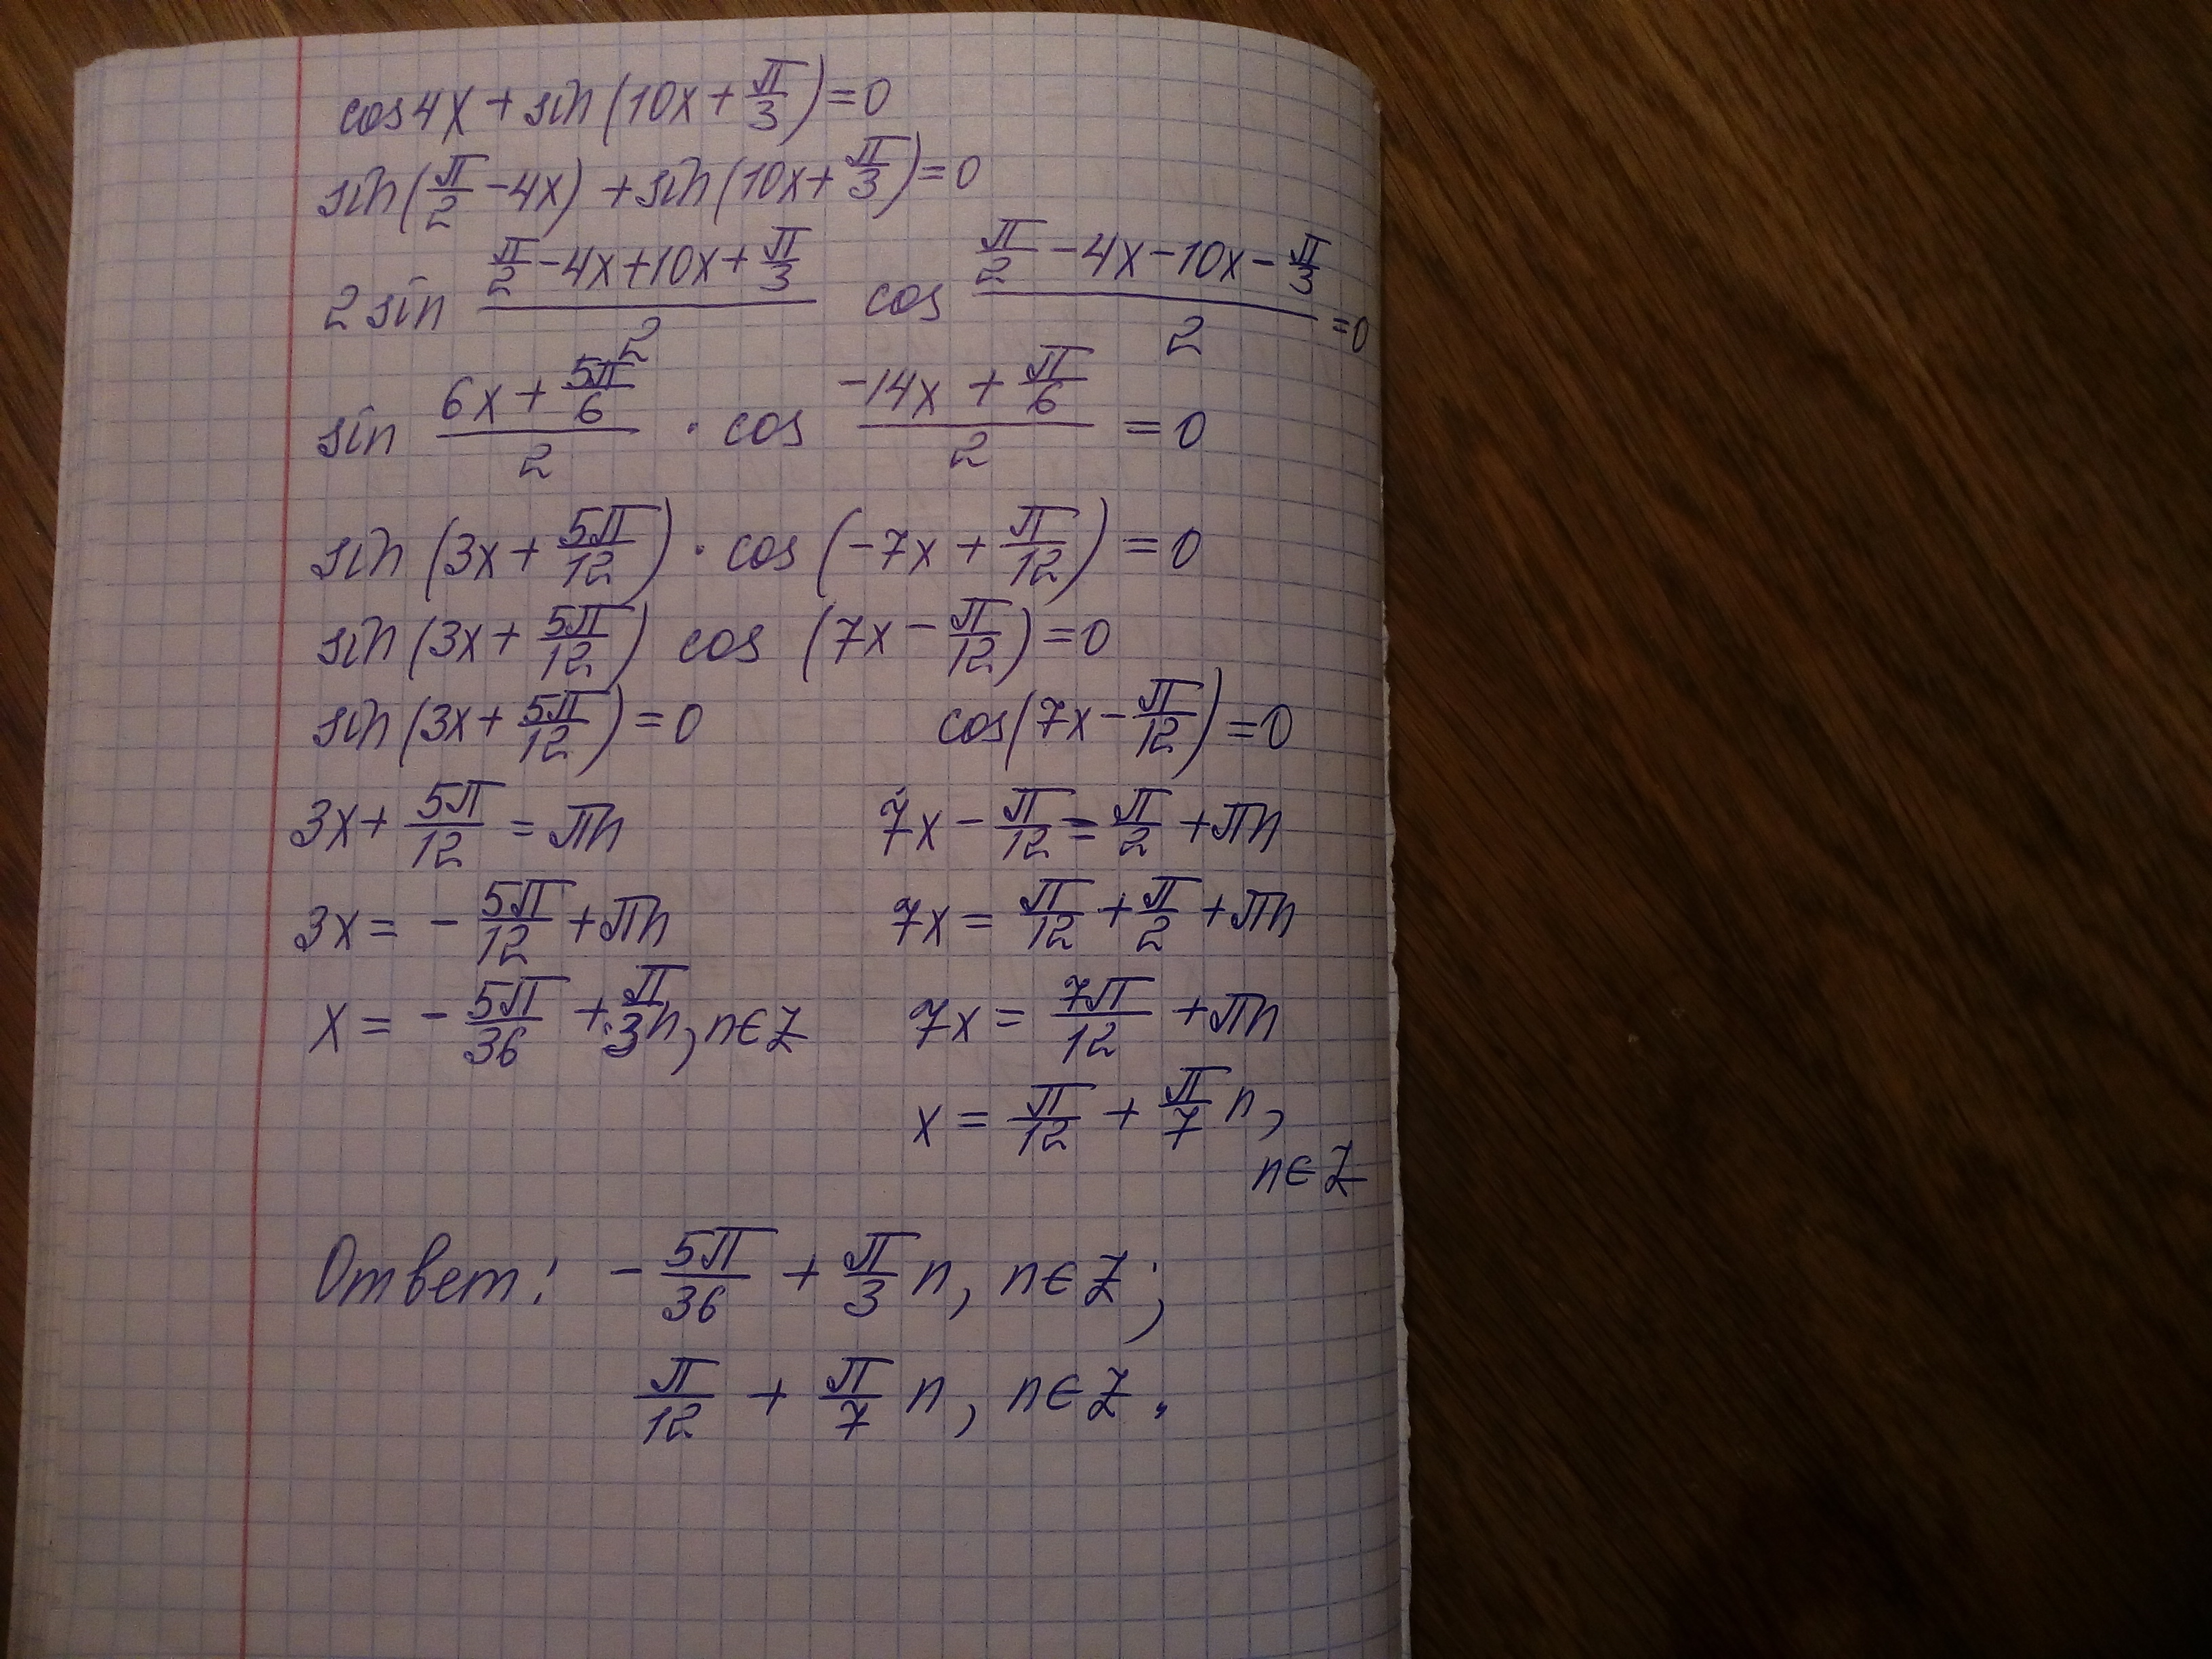 cos4x + sin(10x + π/3) = 0
sin(π/2 - 4x) + sin(10x + π/3) = 0
2 sin (π/2 - 4x + 10x + π/3)/2 cos (π/2 - 4x - 10x - π/3)/2 = 0
sin (6x + 5π/6)/2 · cos (-14x + π/6)/2 = 0
sin (3x + 5π/12) · cos (-7x + π/12) = 0
sin (3x + 5π/12) cos (7x - π/12) = 0
sin (3x + 5π/12) = 0 cos(7x - π/12) = 0
3x + 5π/12 = πn 7x - π/12 = π/2 + πn
3x = - 5π/12 + πn 7x = π/12 + π/2 + πn
x = - 5π/36 + π/3 n, n∈Z 7x = 7π/12 + πn
x = π/12 + π/7 n,
n∈Z
Ответ: - 5π/36 + π/3 n, n∈Z;
π/12 + π/7 n, n∈Z.